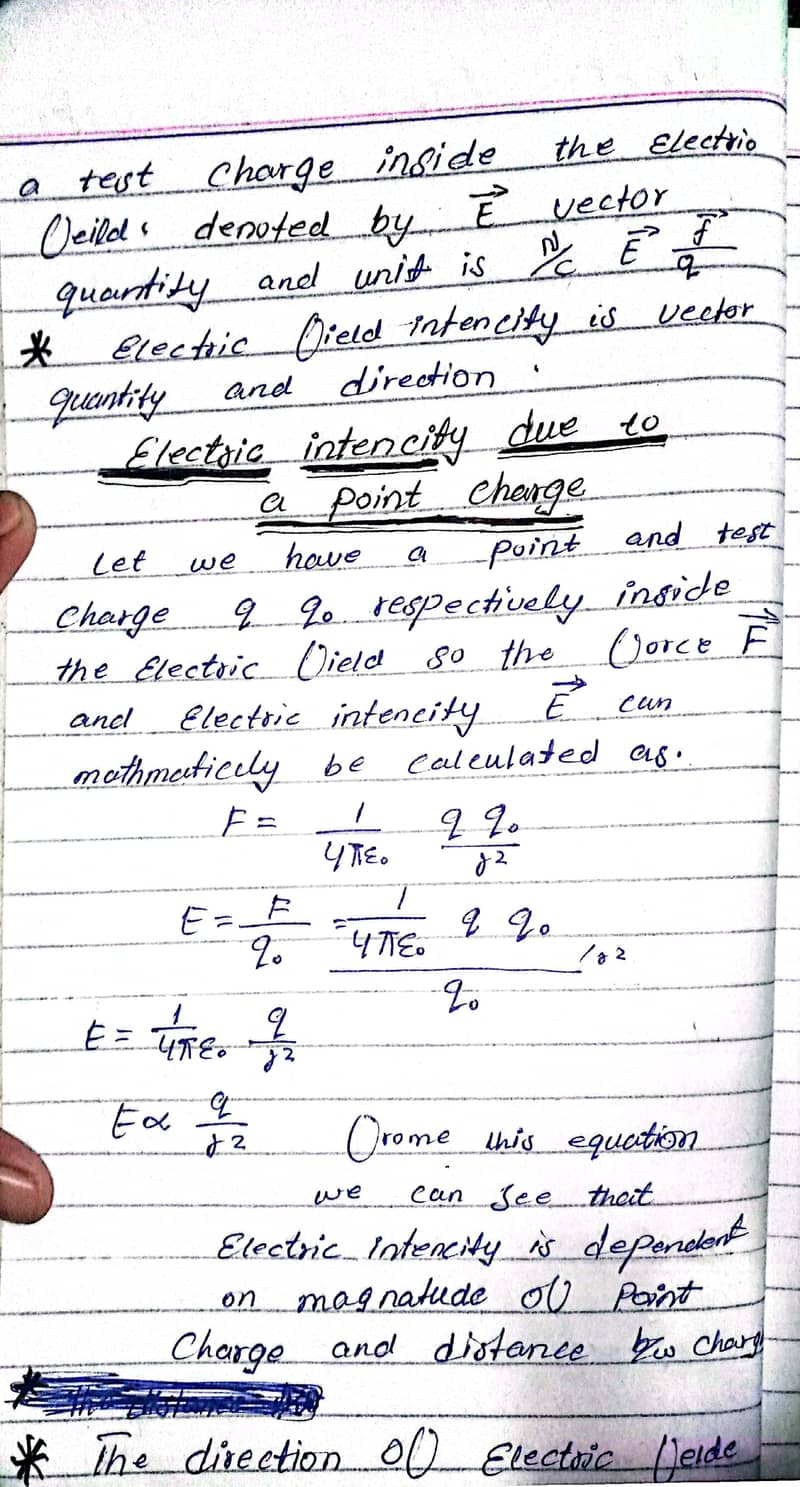 a test charge inside the Electric
feild. denoted by E⃗ vector
quantity and unit is N/C E⃗ f⃗/q
* Electric field intencity is vector
quantity and direction .
Electric intencity due to
a point charge
Let we have a point and test
charge q q₀ respectively inside
the Electric field so the force F⃗
and Electric intencity E⃗ can
mathmaticely be calculated as.
F = 1/4πε₀ q q₀/r²
E = F/q₀ = 1/4πε₀ q q₀ /r² / q₀
E = 1/4πε₀ q/r²
E ∝ q/r² frome this equation
we can see that
Electric intencity is dependent
on magnatude of Point
Charge and distance b/w charg
* The direction of Electric feide